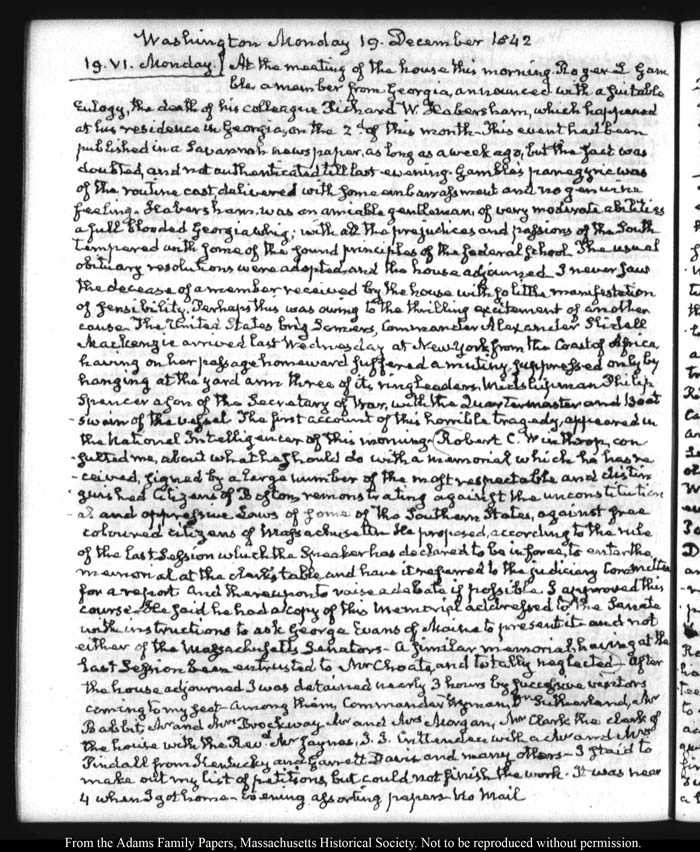 Washington Monday 19. December 1842
19. VI. Monday. At the meeting of the house this morning Roger L Gam
ble a member from Georgia, announced with a suitable
Eulogy, the death of his colleague Richard W. Habersham, which happened
at his residence in Georgia, on the 2d of this month. This event had been
published in a Savannah newspaper, as long as a week ago, but the fact was
doubted, and not authenticated till last evening. Gambles panegyric was
of the routine cast, delivered with some embarrassment and no genuine
feeling. Habersham was an amiable gentleman, of very moderate abilities
a full blooded Georgia whig; with all the prejudices and passions of the South
tempered with some of the sound principles of the federal School. The usual
obituary resolutions were adopted, and the house adjourned. I never saw
the decease of a member received by the house with so little manifestation
of sensibility. Perhaps this was owing to the thrilling excitement of another
cause. The United States brig Somers, Commander Alexander Slidell
Mackenzie arrived last Wednesday at New York from the Coast of Africa
having on her passage homeward suffered a mutiny, suppressed only by
hanging at the yard arm three of its ringleaders. Midshipman Philip
Spencer a son of the Secretary of War, with the Quartermaster and Boat
-swain of the vessel. The first account of this horrible tragedy, appeared in
the National Intelligencer of this morning. Robert C. Winthrop, con
-sulted me, about what he should do with a memorial which he has re
-ceived, signed by a large number of the most respectable and distin
guished Citizens of Boston, remonstrating against the unconstitution
-al and oppressive Laws of some of the Southern States, against free
coloured citizens of Massachusetts. He proposed, according to the rule
of the last Session which the Speaker has declared to be in force, to enter the
memorial at the clerk's table, and have it referred to the judiciary Committee
for a report. And thereupon to raise a debate if possible. I approved this
course. He said he had a copy of this Memorial addressed to the Senate
with instructions to ask George Evans of Maine to present it and not
either of the Massachusetts Senators. A similar memorial, having at the
last Session been entrusted to Mr Choate, and totally neglected. After
the house adjourned I was detained nearly 3 hours by successive visitors
coming to my seat. Among them, Commander Wyman, Dr Sutherland, Mr
Babbit, Mr and Mrs Brockway Mr and Mrs Morgan, Mr Clark the clerk of
the house with the Revd Mr Jaynes, J. J. Crittenden with a Mr and Mrs
Tindall from Kentucky and Garrett Davis and many others. I staid to
make out my list of petitions, but could not finish the work. It was near
4 when I got home. Evening assorting papers. No Mail
From the Adams Family Papers, Massachusetts Historical Society. Not to be reproduced without permission.